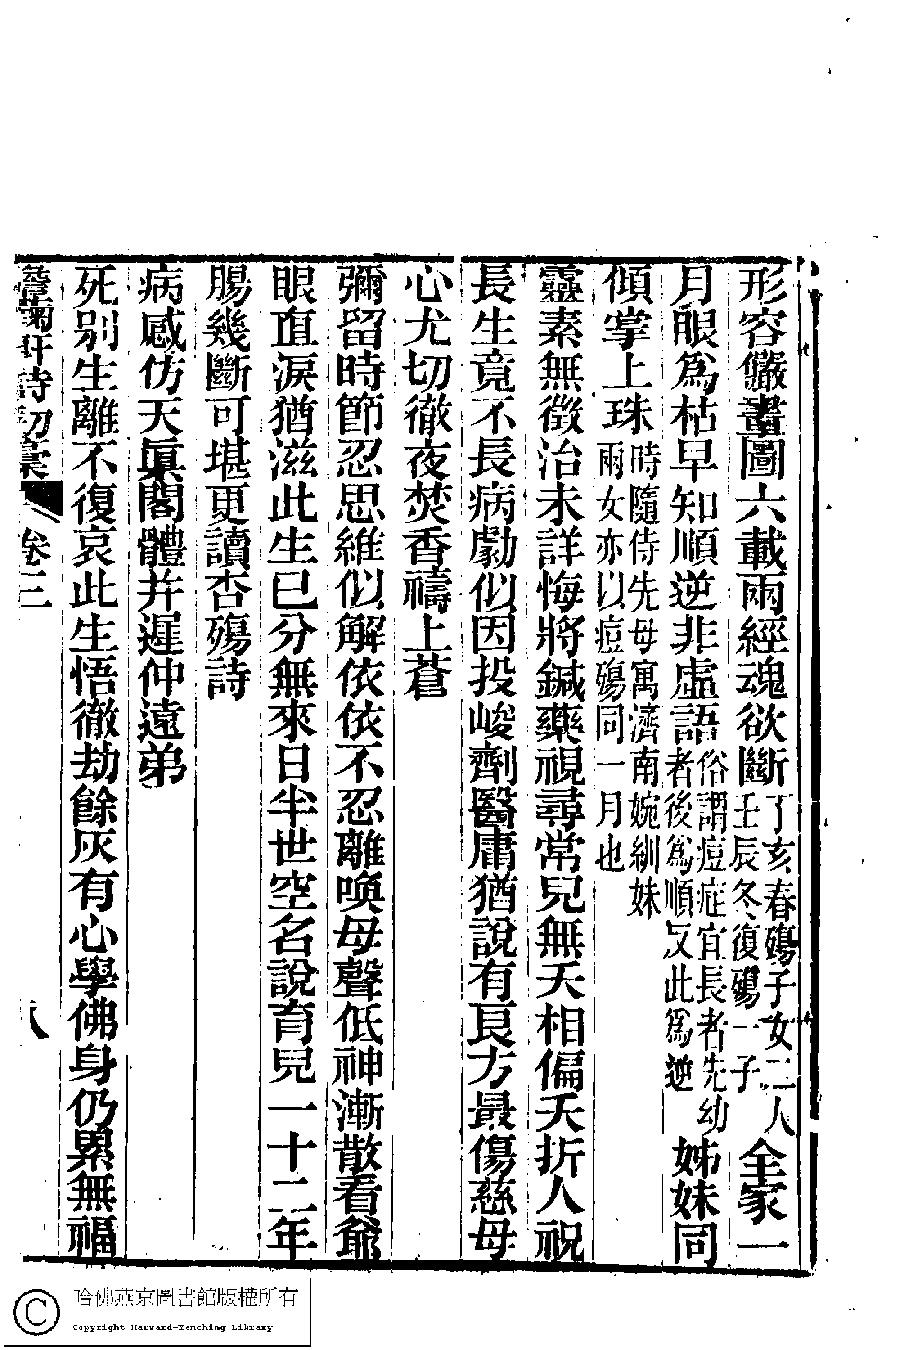 形容儼畫圖六載兩經魂欲斷丁亥春殤子女二人壬辰冬復殤一子全家一
月眼爲枯早知順逆非虛語俗謂痘症宜長者先幼者後爲順反此爲逆姊妹同
傾掌上珠時隨侍先母寓濟南婉紃妹兩女亦以痘殤同一月也
靈素無徵治未詳悔將鍼藥視尋常兒無夭相偏夭折人祝
長生竟不長病劇似因投峻劑醫庸猶說有良方最傷慈母
心尤切徹夜焚香禱上蒼
彌留時節忍思維似解依依不忍離喚母聲低神漸散看爺
眼直淚猶滋此生已分無來日半世空名說育兒一十二年
腸幾斷可堪更讀杏殤詩
病感仿天眞閣體并遲仲遠弟
死別生離不復哀此生悟徹劫餘灰有心學佛身仍累無福
詩初稾 卷三 八
哈佛燕京圖書館版權所有
Copyright Harvard-Yenching Library